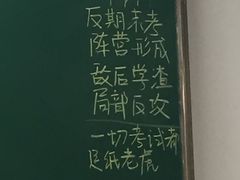 反期末考
阵营形成
敌后学渣
局部反攻
一切考试都
是纸老虎